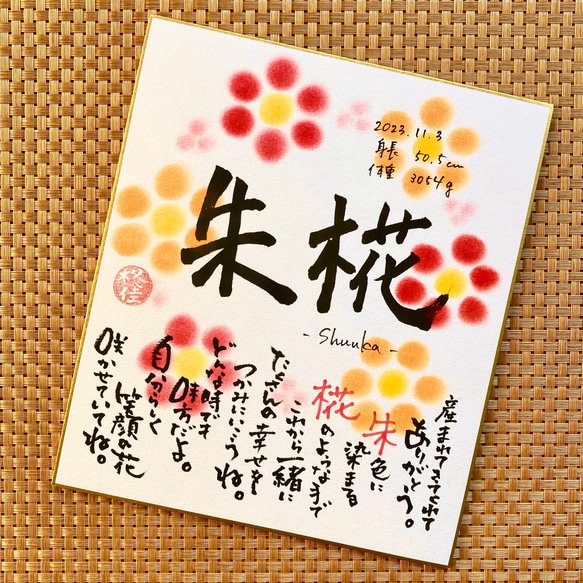 2023.11.3
身長 50.5cm
体重 3054g
朱椛
- Shuuka -
産まれてきてくれて
ありがとう。
朱色に
染まる
椛
のような手で
これから一緒に
たくさんの幸せを
つかみにいこうね。
どんな時でも
味方だよ。
自分らしく
笑顔の花
咲かせていてね。